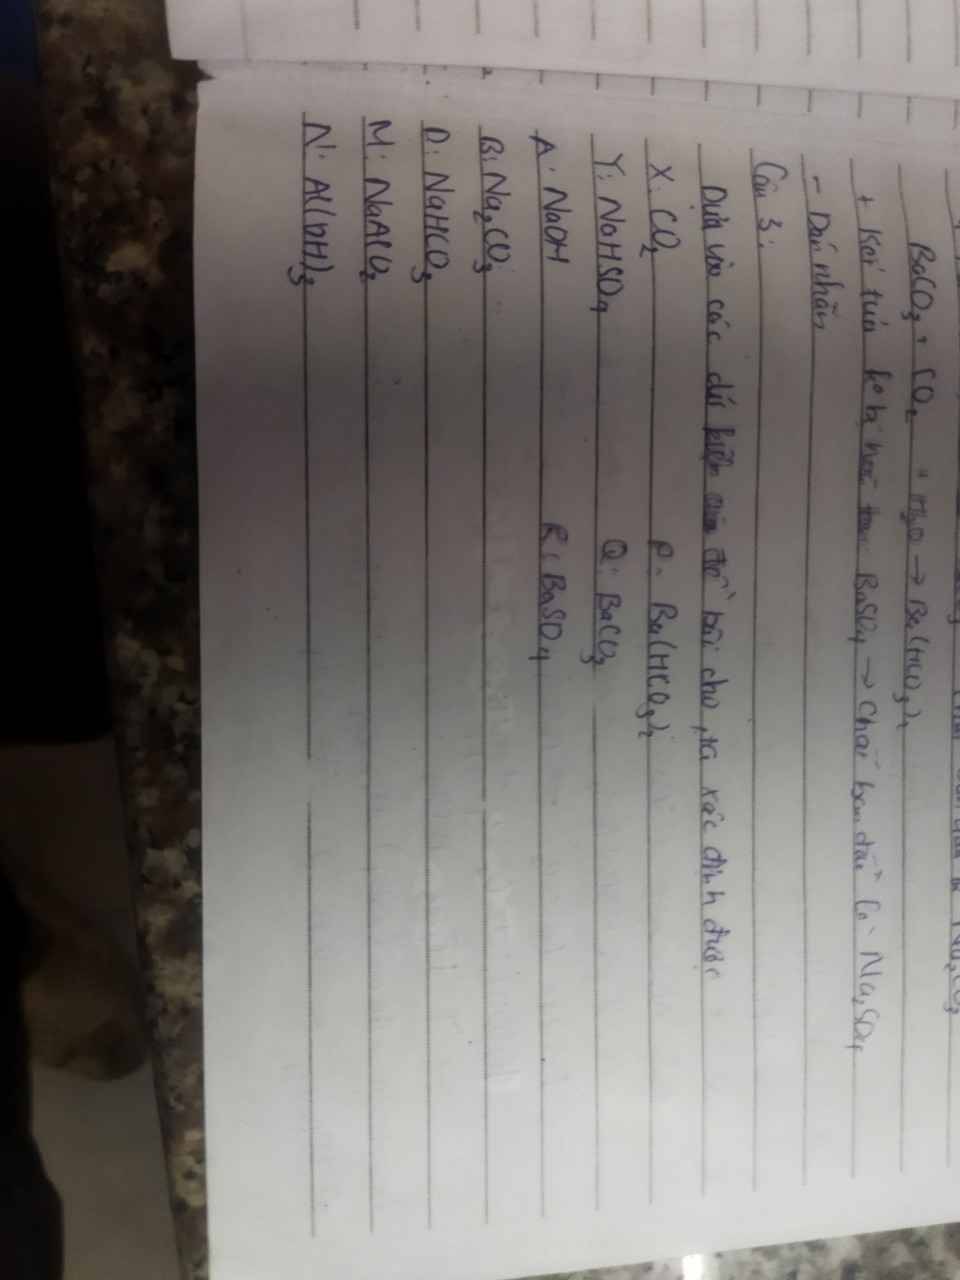 BaCO3 + CO2 + H2O → Ba(HCO3)2
+ Kết tủa ko bị hoà tan: BaSO4 → Chất ban đầu là Na2SO4
- Dán nhãn
Câu 3:
Dựa vào các dữ kiện của đề bài cho, ta xác định được
X: CO2 P: Ba(HCO3)2
Y: NaHSO4 Q: BaCO3
A: NaOH R: BaSO4
B: Na2CO3
D: NaHCO3
M: NaAlO2
N: Al(OH)3